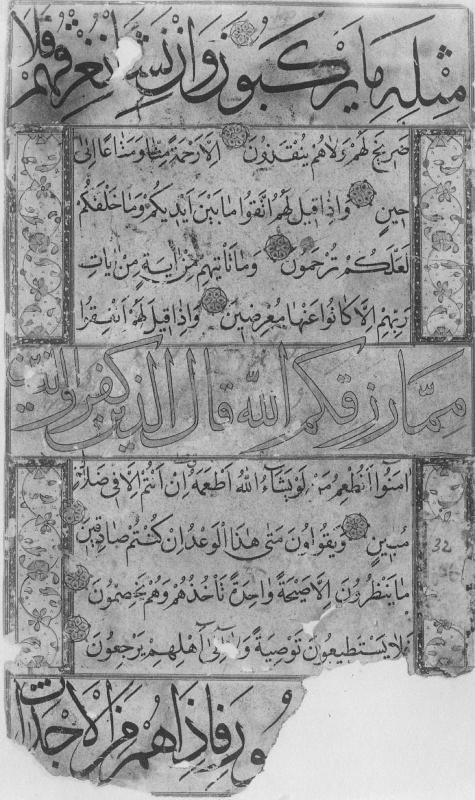 مِثْلِهِ مَا يَرْكَبُونَ وَاِنْ نَشَأْ نُغْرِقْهُمْ فَلَا
صَرِيخَ لَهُمْ وَلَاهُمْ يُنْقَذُونَ اِلَّا رَحْمَةً مِنَّا وَمَتَاعًا اِلٰى
حِينٍ وَاِذَا قِيلَ لَهُمُ اتَّقُوا مَا بَيْنَ اَيْدِيكُمْ وَمَا خَلْفَكُمْ
لَعَلَّكُمْ تُرْحَمُونَ وَمَا تَأْتِيهِمْ مِنْ اٰيَةٍ مِنْ اٰيَاتِ
رَبِّهِمْ اِلَّا كَانُوا عَنْهَا مُعْرِضِينَ وَاِذَا قِيلَ لَهُمْ اَنْفِقُوا
مِمَّا رَزَقَكُمُ اللّٰهُ قَالَ الَّذِينَ كَفَرُوا لِلَّذِينَ
اٰمَنُوا اَنُطْعِمُ مَنْ لَوْ يَشَاءُ اللّٰهُ اَطْعَمَهُ اِنْ اَنْتُمْ اِلَّا فِى ضَلَالٍ
مُبِينٍ وَيَقُولُونَ مَتٰى هٰذَا الْوَعْدُ اِنْ كُنْتُمْ صَادِقِينَ
32
مَا يَنْظُرُونَ اِلَّا صَيْحَةً وَاحِدَةً تَأْخُذُهُمْ وَهُمْ يَخِصِّمُونَ
فَلَا يَسْتَطِيعُونَ تَوْصِيَةً وَلَا اِلٰى اَهْلِهِمْ يَرْجِعُونَ
ورِ فَاِذَا هُمْ مِنَ الْاَجْدَاثِ